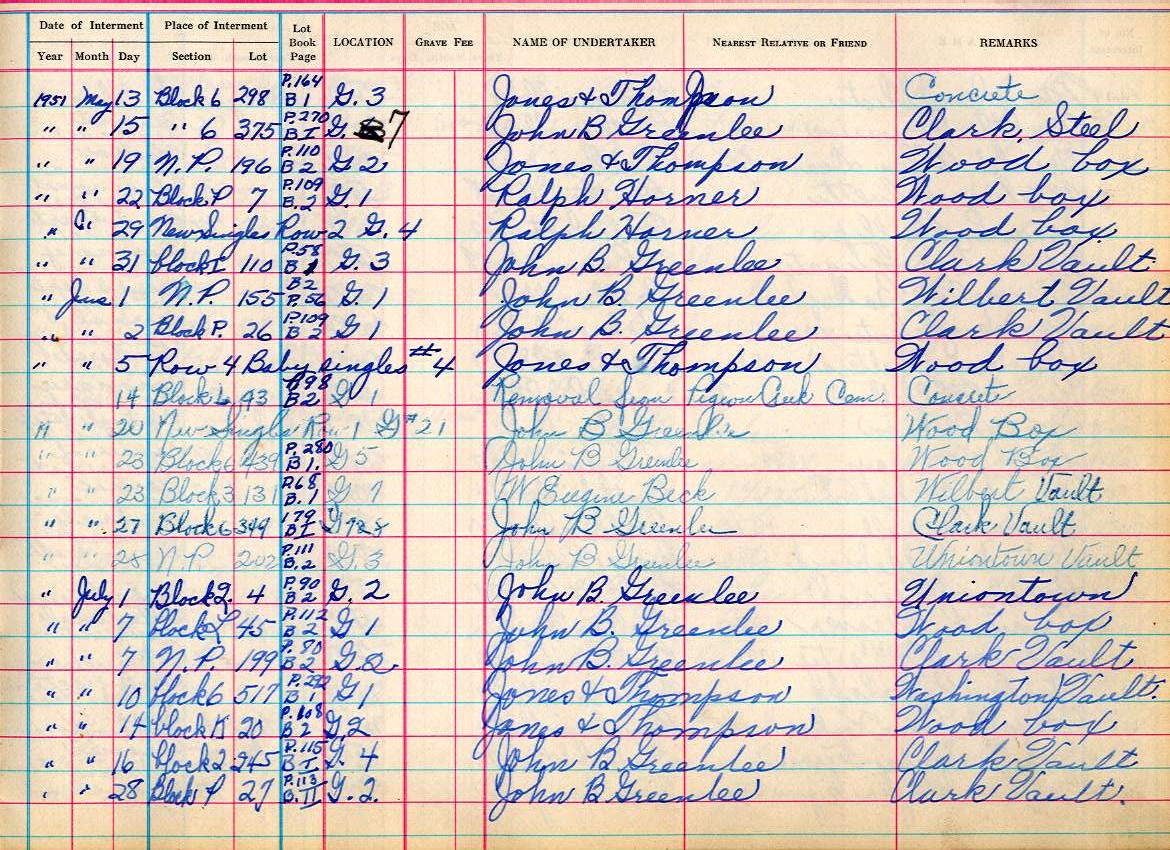 Date of Interment Place of Interment Lot Book Page LOCATION GRAVE FEE NAME OF UNDERTAKER NEAREST RELATIVE OR FRIEND REMARKS
Year Month Day Section Lot
1951 May 13 Block 6 298 P.164 B 1 G. 3 Jones & Thompson Concrete
" " 15 " 6 375 P.270 B I G. 7 John B Greenlee Clark, Steel
" " 19 N.P. 196 P.110 B 2 G 2 Jones & Thompson Wood box
" " 22 Block P 7 P.109 B.2 G. 1 Ralph Horner Wood box
" " 29 New Singles Row 2 G. 4 Ralph Horner Wood box
" " 31 block I 110 P.58 B G. 3 John B. Greenlee Clark Vault.
" June 1 N.P. 155 B2 P.56 G. 1 John B. Greenlee Wilbert Vault
" " 2 Block P. 26 P.109 B 2 G 1 John B. Greenlee Clark Vault
" " 5 Row 4 Baby singles #4 Jones & Thompson Wood box
14 Block 43 B2 G 1 Removal from Pigeon Creek Cem. Concrete
" " 20 New Singles Row 1 G #21 John B Greenlee Wood Box
" " 23 Block 6 439 P.280 B1. G 5 John B Greenlee Wood Box
" " 23 Block 3 131 P.68 B.1 G 7 W Eugene Beck Wilbert Vault
" " 27 Block 6 349 179 B I John B Greenlee Clark Vault
28 N.P. 202 P.111 B.2 G.3 John B Greenlee Uniontown Vault
" July 1 Block 2. 4 P.90 B 2 G. 2 John B. Greenlee Uniontown
" " 7 block 45 P.112 B 2 G 1 John B. Greenlee Wood box
" " 7 N.P. 199 P.80 B 2 G.2. John B. Greenlee Clark Vault
" " 10 block 6 517 B 1 G 1 Jones & Thompson Washington Vault.
" " 14 block K 20 B 2 G.2 Jones & Thompson Wood box
" " 16 block 2 245 P.115 B I G. 4 John B Greenlee Clark Vault
" " 28 Block P 27 P.113 B.II G. 2. John B Greenlee Clark Vault.